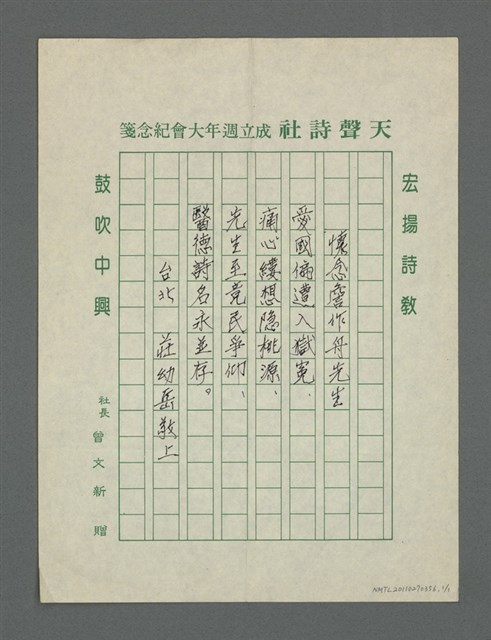 天聲詩社成立週年大會紀念箋
宏揚詩教
懷念詹作舟先生
愛國偏遭入獄冤.
痛心緩想隐桃源、
先生至竟民爭仰、
醫德詩名永並存。
台北 莊幼岳敬上
鼓吹中興
社長 曾文新 贈
NMTL20110270336,1/1